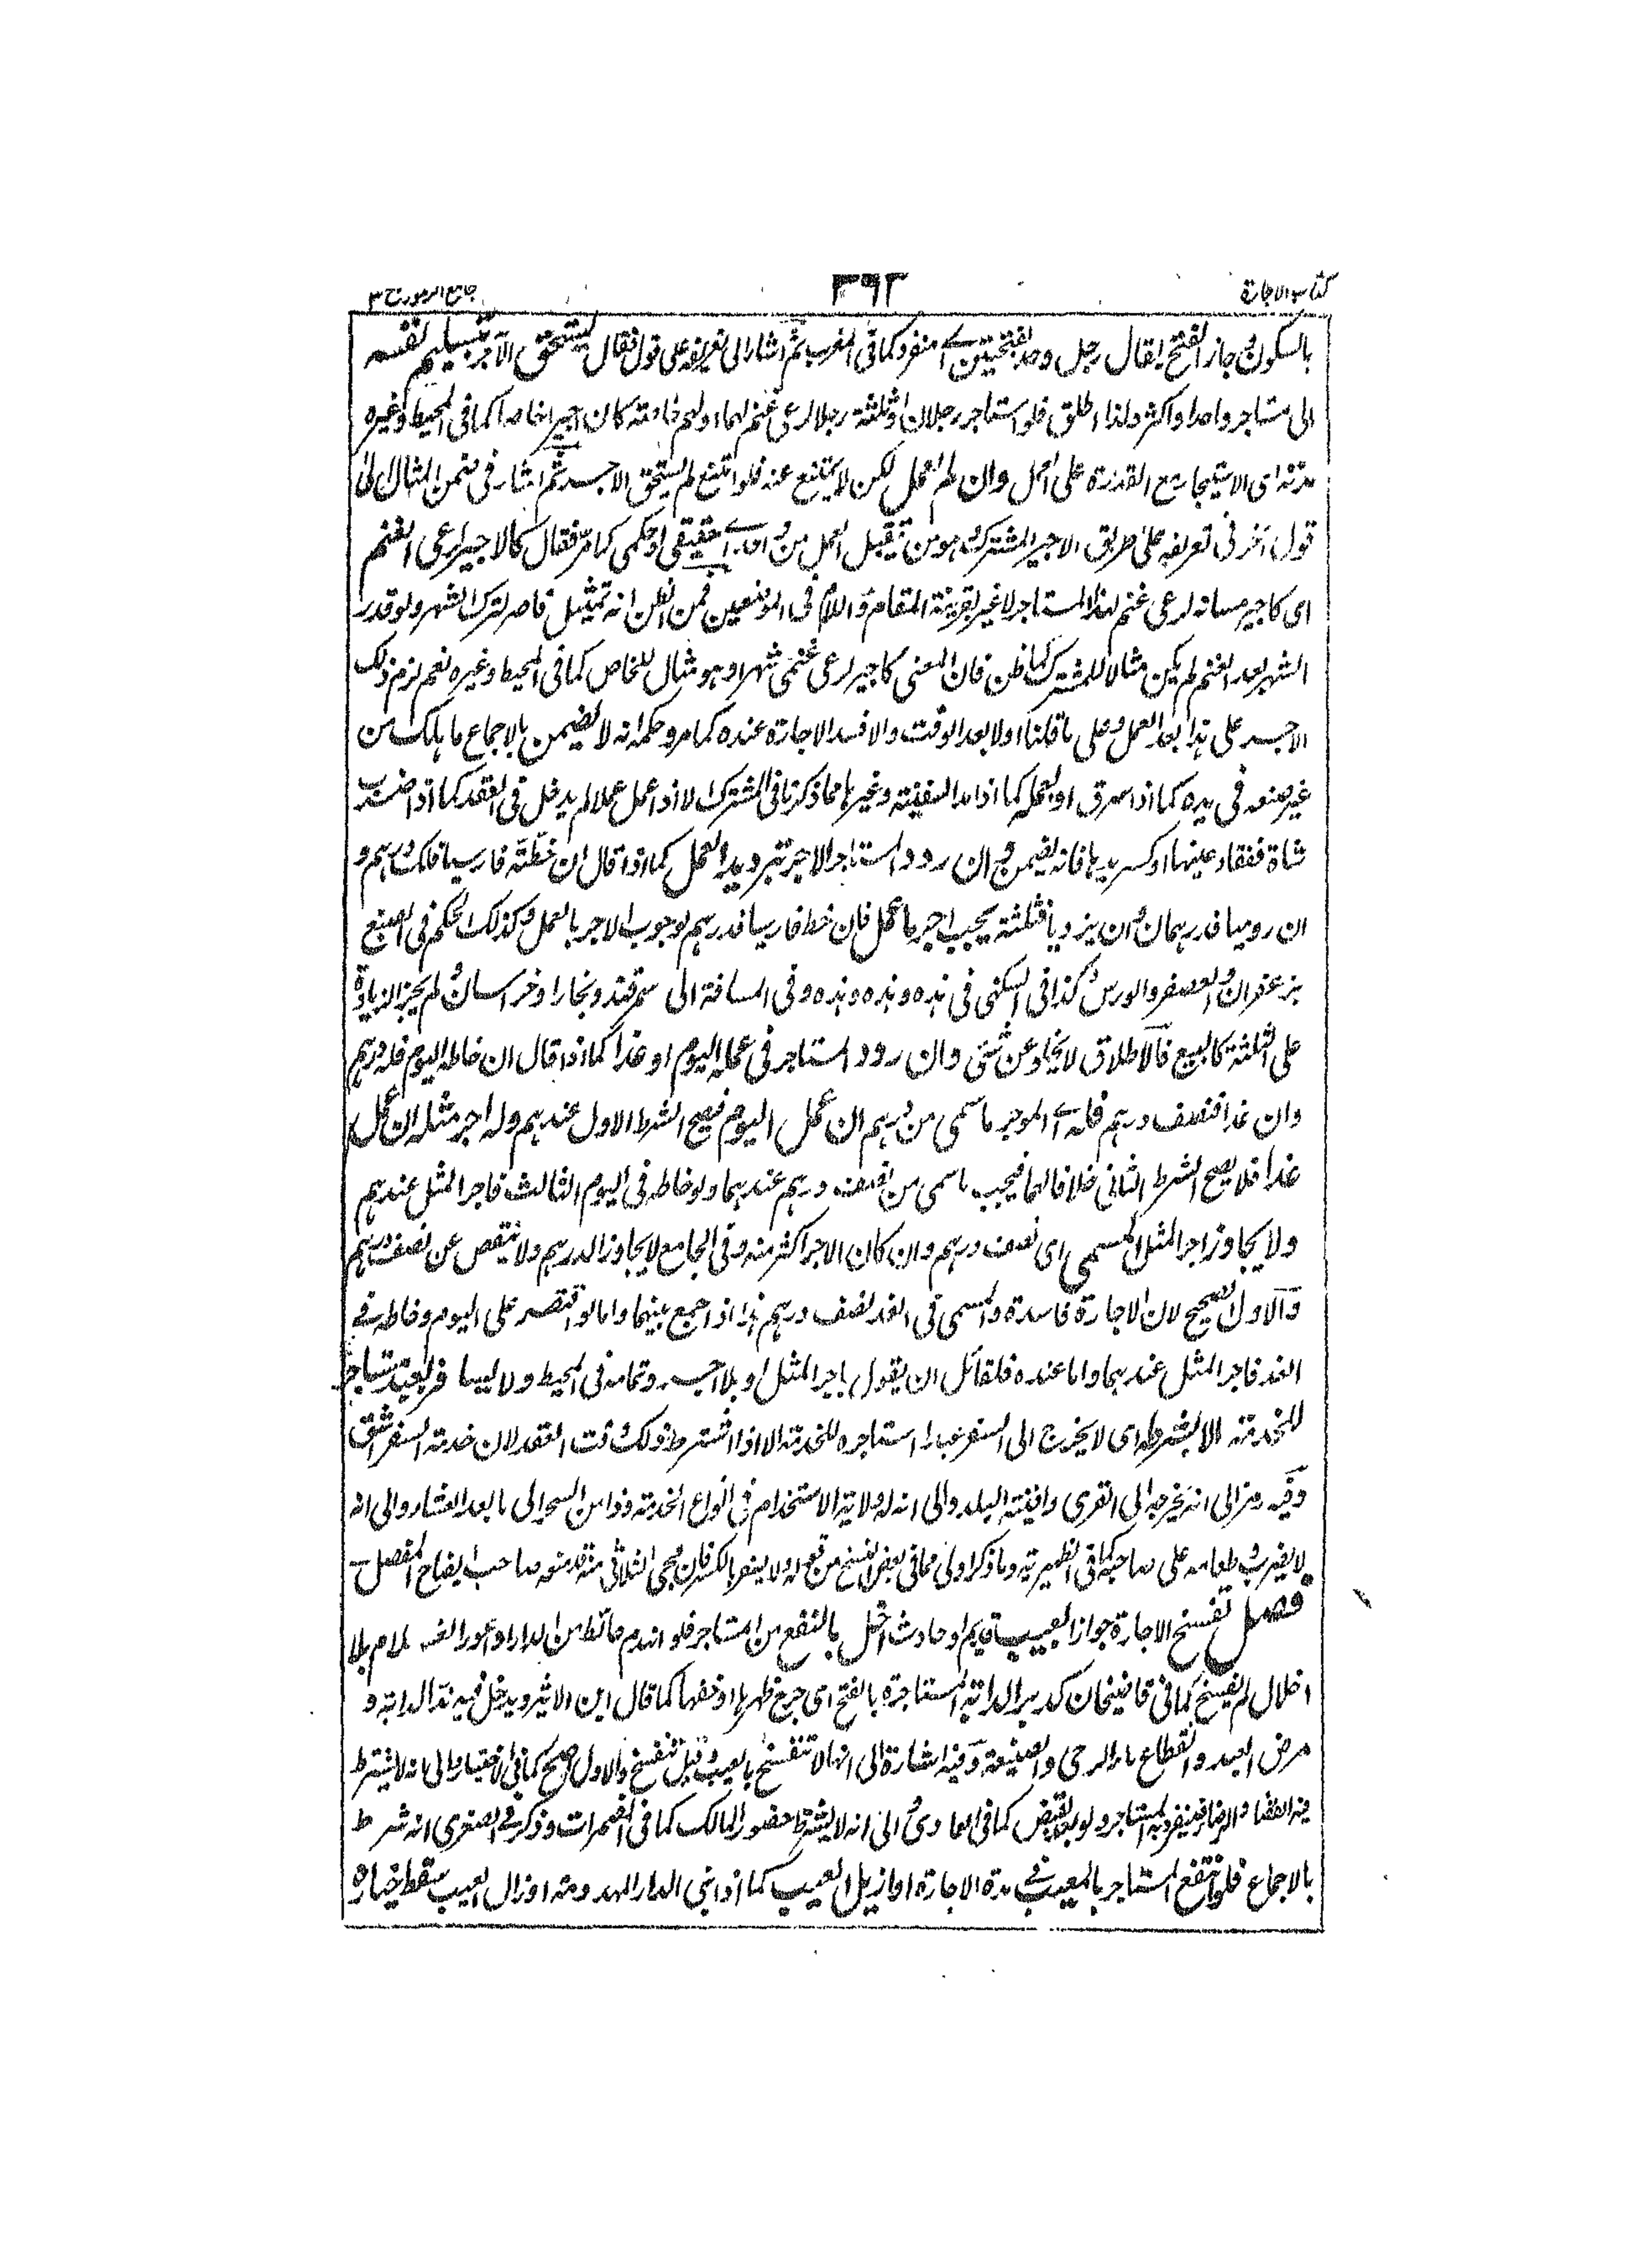 كتاب الاجارة
٣٩٢
جامع الرموز ج ٣
بالسكون وجاز الفتح يقال رجل وحد بفتحتين اے منفرد كما فى المغرب ثم اشار الى تعريفه على قول فقال يستحق الاجر بتسليم نفسه
الى مستاجر واحد او اكثر ولذا اطلق فلو استاجر رجلان او ثلثة رجلا لرعى غنم لهما او لهم خاصة كان اجيرا خاصا كما فى المحيط وغيره
مدته اى الاستيجار مع القدرة على العمل وان لم يعمل لكن لا يمتنع عنه فلو امتنع لم يستحق الاجر ثم اشار فى ضمن المثال الى
قول آخر فى تعريفه على طريق الاجير المشترك هو من تقبل العمل من واحد حقيقى او حكمى كما مر فقال كالاجير لرعى الغنم
اى كاجير مسانه لرعى غنم لهذا المستاجر لا غير بقرينة المقام واللام فى الموضعين فمن الظن انه تمثيل قاصر لترك الشهر ولو قدر
الشهر بعد الغنم لم يكن مثالا للمشترك كما ظن فان المعنى كاجير لرعى غنمى شهرا وهو مثال للخاص كما فى المحيط وغيره نعم لزم ذلك
الاجر على هذا بعد العمل وعلى ما قلنا اولا بعد الوقت والا فسد الاجارة عنده كما مر وحكمه انه لا يضمن بالاجماع ما هلك من
غير صنعه فى يده كما اذا سرق او بعمله كما اذا مد السفينة وغيرها مما ذكرنا فى المشترك لا اذا عمل عملا لم يدخل فى العقد كما اذا ضرب
شاة ففقاء عينها او كسر يديها فانه يضمن وان ردد المستاجر الاجر بترديد العمل كما اذا قال ان خطته فارسيا فلك درهم و
ان روميا فدرهمان وان يزديا فثلثة يجب اجر ما عمل فان خط فارسيا فدرهم لوجوب الاجر بالعمل وكذلك الحكم فى الصبغ
بزعفران والعصفر والورس وكذا فى السكنى فى هذه وهذه وهذه وفى المسافة الى سمرقند وبخارا وخراسان ولم يجز الزيادة
على الثلثة كالبيع فالاطلاق لا يخلو عن شئ وان ردد المستاجر فى عمله اليوم او غدا كما اذا قال ان خاطه اليوم فله درهم
وان غدا فنصف درهم فله اے الموجر ما سمى من درهم ان عمل اليوم فيصح الشرط الاول عندهم وله اجر مثله ان عمل
غدا فلا يصح الشرط الثانى خلافا لهما فيجب ما سمى من نصف درهم عندهما ولو خاطه فى اليوم الثالث فاجر المثل عندهم
ولا يجاوز اجر المثل المسمى اى نصف درهم وان كان الاجر اكثر منه وفى الجامع لا يجاوز الدرهم ولا ينقص عن نصف درهم
والاول الصحيح لان الاجارة فاسدة والمسمى فى الغد نصف درهم هذا اذا جمع بينهما واما لو اقتصر على اليوم وخاطه فے
الغد فاجر المثل عندهما واما عنده فلقائل ان يقول باجر المثل او بلا اجر وتمامه فى المحيط ولا يسافر بعبد مستاجر
للخدمة الا بشرطه اى لا يخرج الى السفر عبدا استاجره للخدمة الا اذا اشترط ذلك وقت العقد لان خدمة السفر اشق
وفيه رمز الى انه يخرجه الى القرى وافنية البلد والى انه له ولاية الاستخدام فى انواع الخدمة وذا من السحر الى ما بعد العشاء والى انه
لا يضرب وطعامه على صاحبه كما فى الظهيرية وما ذكر اولى مما فى بعض النسخ من قوله ولا يسفر بالكسر فان مجئ الثلاثى منه صاحب ايضاح المفصل
فصل تفسخ الاجارة جوازا بعيب قديم او حادث اخل بالنفع من المستاجر فلو انهدم حائط من الدار او عور الغلام بلا
اخلال لم يفسخ كما فى قاضيخان كدبر الدابة المستاجرة بالفتح اى جرح ظهرها او خفها كما قال ابن الاثير ويدخل فيه ند الدابة و
مرض العبد وانقطاع ماء الرحى والضيعة وفيه اشارة الى انها لا تنفسخ بالعيب وقيل تنفسخ والاول صحيح كما فى الاختيار والى انه لا يشترط
فيه القضاء والرضا فينفرد به المستاجر ولو بعد القبض كما فى العمادى والى انه لا يشترط حضور المالك كما فى المضمرات وذكر فے الصغرى انه شرط
بالاجماع فلو انتفع المستاجر بالمعيب فے مدة الاجارة او ازيل العيب كما اذا بنى الدار المهدومة او زال العيب سقط خياره